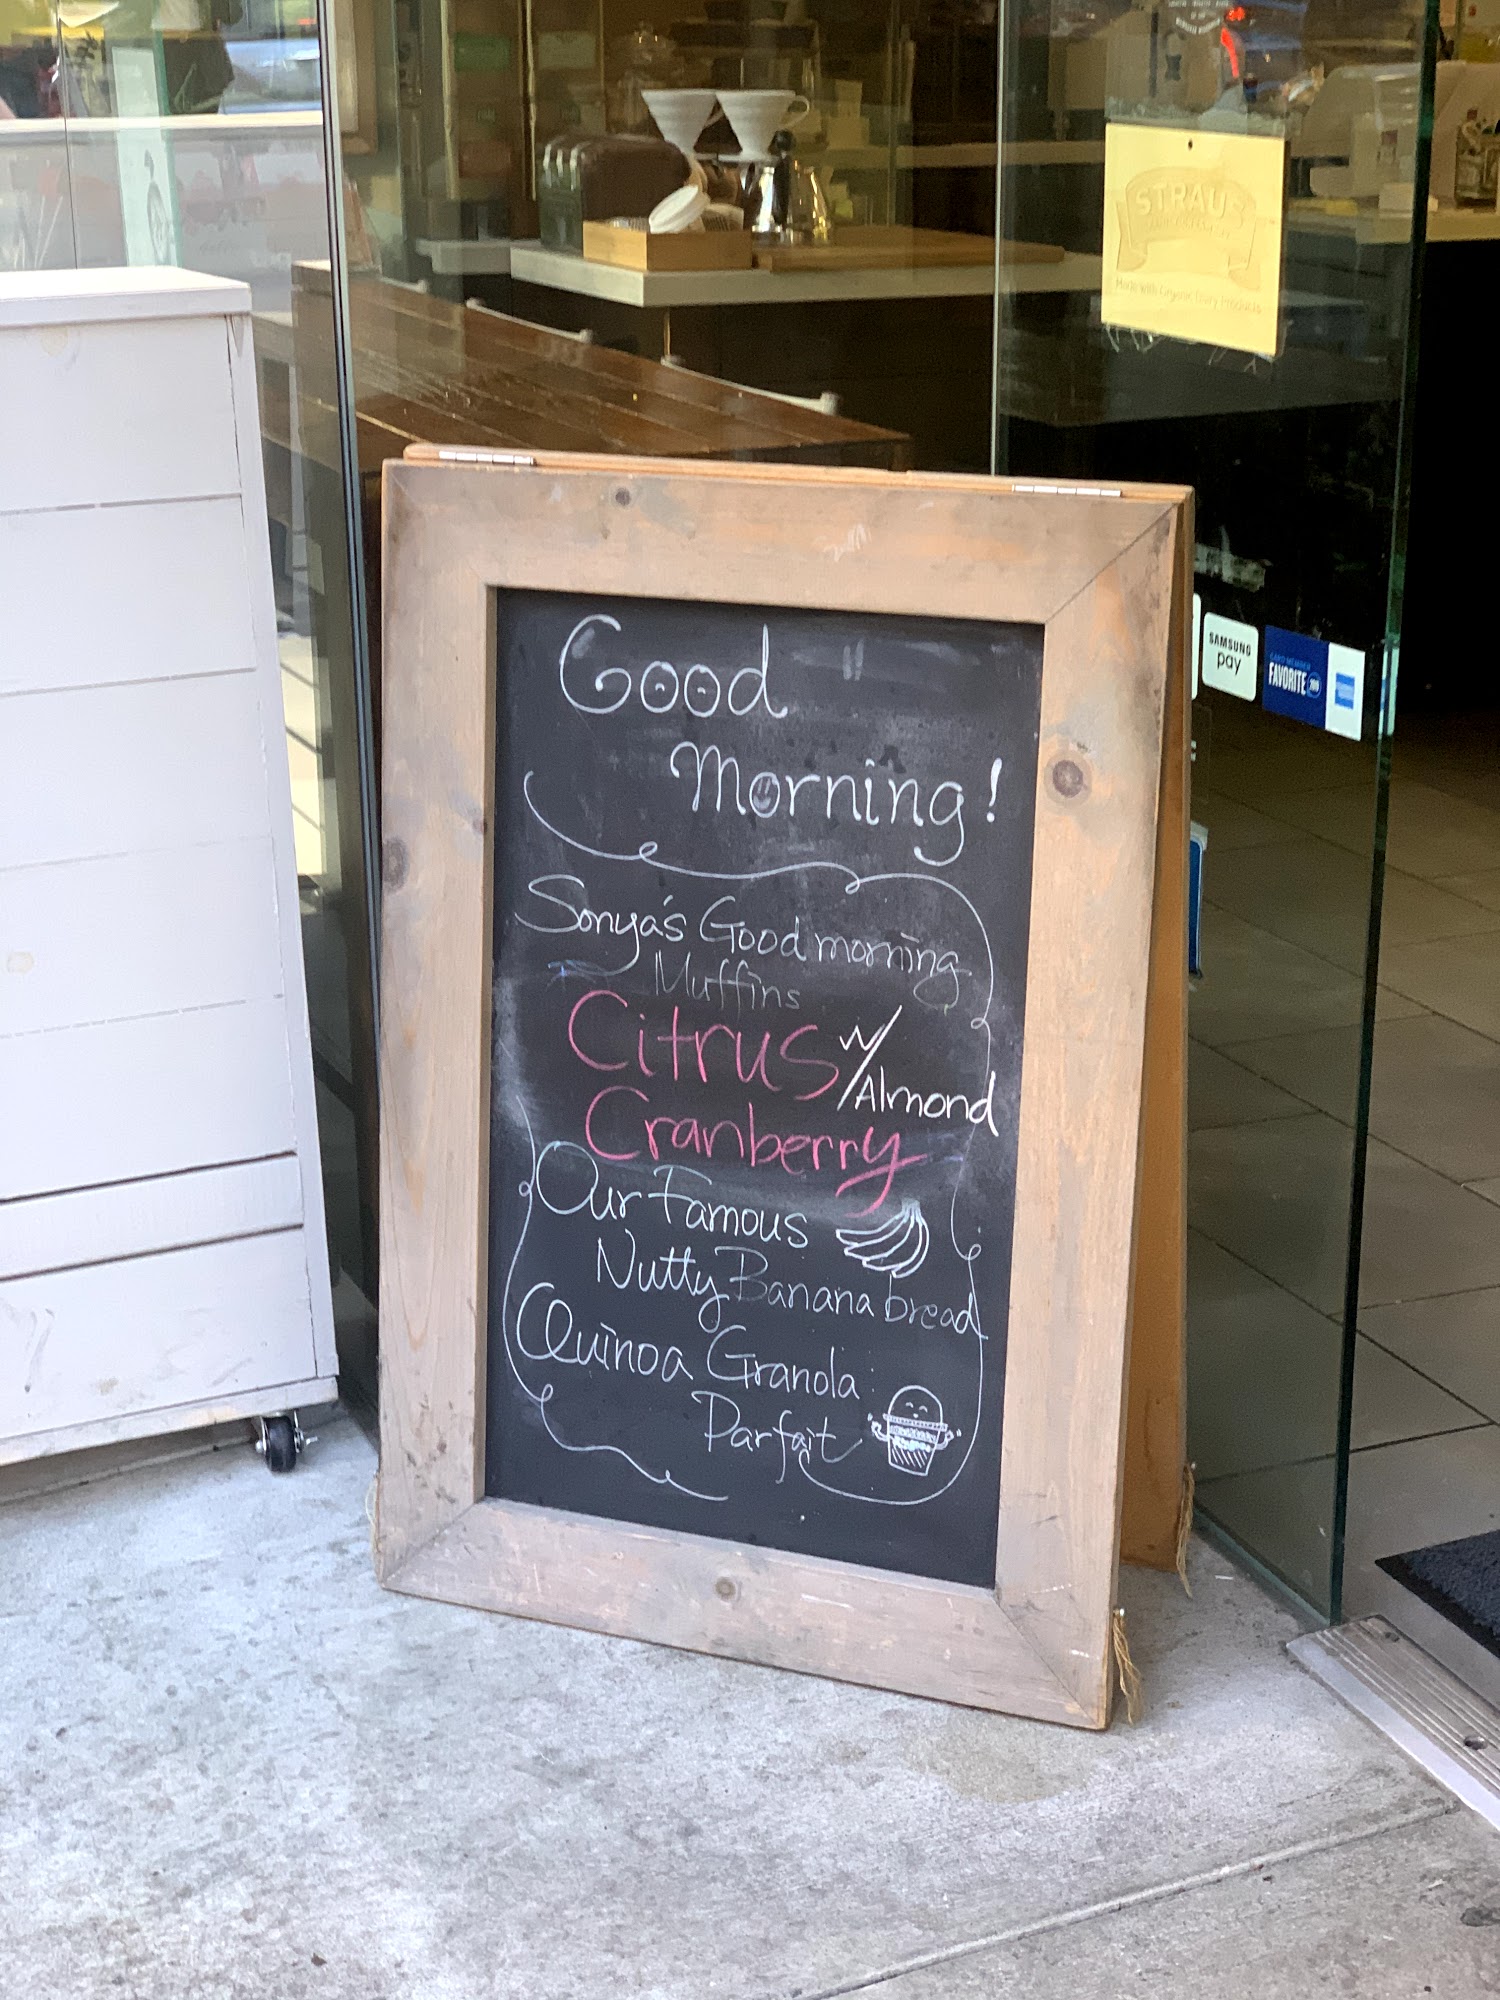 Good
Morning!
Sonya's Good morning
Muffins
Citrus w/
Almond
Cranberry
Our Famous
Nutty Banana bread
Quinoa Granola
Parfait
STRAUS
Made with Organic Dairy Products
SAMSUNG
pay
CARD MEMBER
FAVORITE